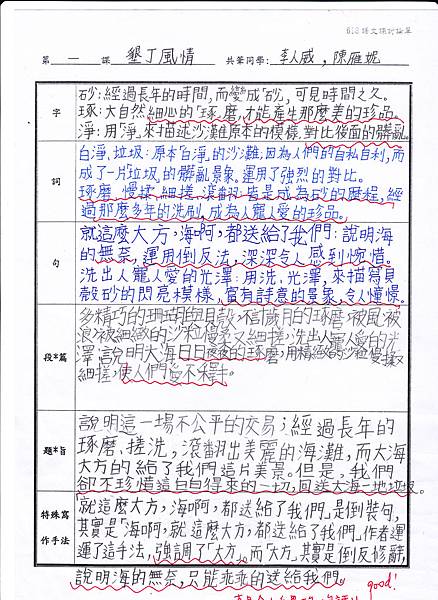 618語文課討論單
第 一 課 墾丁風情 共筆同學:李人威,陳雁妮
字
砂:經過長年的時間,而變成「砂」,可見時間之久。
琢:大自然細心的「琢」磨,才能產生那麼美的珍品。
淨:用「淨」來描述沙灘原本的模樣,對比後面的髒亂。
詞
白淨、垃圾:原本「白淨」的沙灘,因為人們的自私自利,而
成了一片「垃圾」的髒亂景象,運用了強烈的對比。
琢磨、慢揉、細搓、滾翻:皆是成為砂的歷程,經
過那麼多年的洗刷,成為人寵人愛的珍品。
句
就這麼大方,海啊,都送給了我們:說明海
的無奈,運用倒反法,深深令人感到惋惜。
洗出人寵人愛的光澤:用洗、光澤,來描寫貝
殼砂的閃亮模樣,富有詩意的景象,令人憧憬。
段*篇
多精巧的珊瑚與貝殼,不計歲月的琢磨,被風,被
浪,被細緻的沙粒慢揉又細搓,洗出人寵人愛的光
澤:說明大海日日夜夜的琢磨,用精緻的沙粒慢揉又
細搓,使人們愛不釋手。
題*旨
說明這一場不公平的交易;經過長年的
琢磨、搓洗,滾翻出美麗的海灘,而大海
大方的給了我們這片美景。但是,我們
卻不珍惜這白白得來的一切,回送大海一地垃圾。
特殊寫
作手法
「就這麼大方,海啊,都送給了我們」是倒裝句,
其實是「海啊,就這麼大方,都送給了我們」,作者運
運了這手法,強調了「大方」。而「大方」其實是倒反修辭,
說明海的無奈,只能乖乖的送給我們。 good!